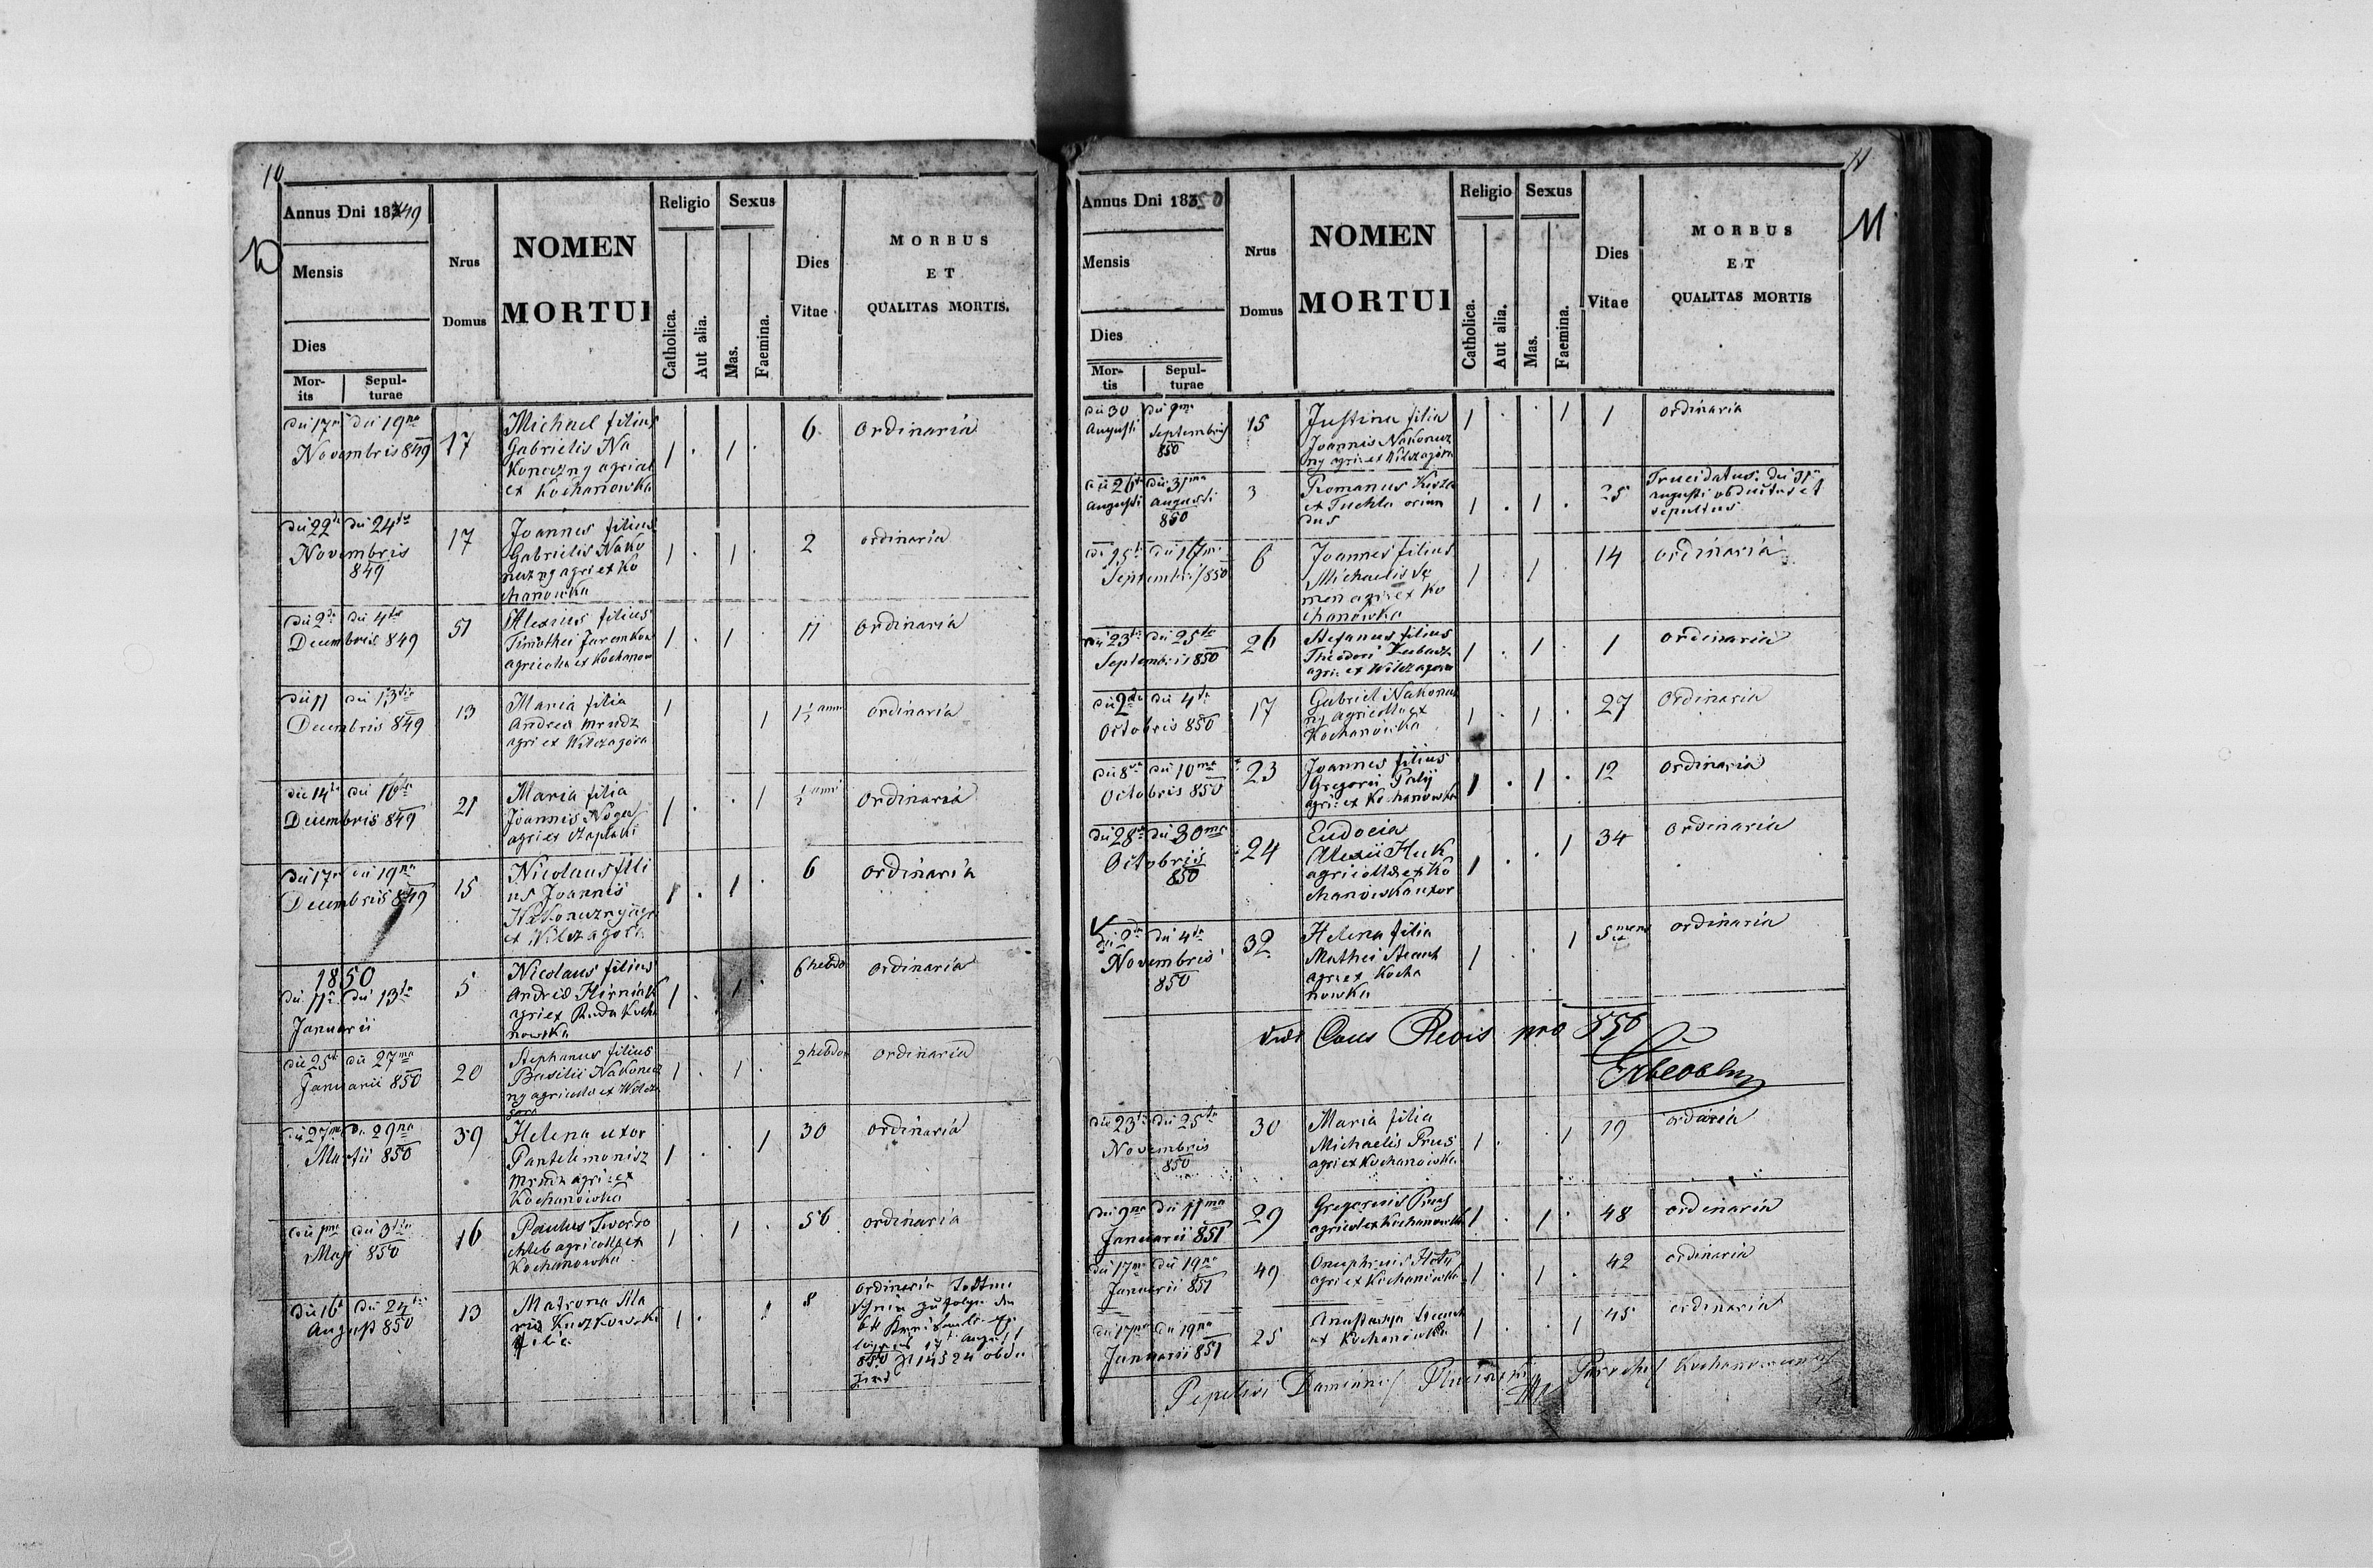 10
Annus Dni 1849
Mensis
Dies
Mor-
its
Sepul-
turae
Nrus
Domus
NOMEN
MORTUI
Religio
Catholica.
Aut alia.
Sexus
Mas.
Faemina.
Dies
Vitae
MORBUS
ET
QUALITAS MORTIS.
die 17ma die 19na
Novembris 849
17
Michael filius
Gabrielis Na
koneczny agricol
ex Kochanowka
1 . 1 .
6
Ordinaria
die 22 die 24ta
Novembris
849
17
Joannes filius
Gabrielis Nako
neczny agri ex Ko
chanowka
1 . 1 .
2
ordinaria
die 2da die 4ta
Decembris 849
51
Alexius filius
Timothei
agricola ex Kochanow
1 . 1 .
11
Ordinaria
die 11 die 13tia
Decembris 849
13
Maria filia
Andrea Mrudz
agri ex Wilczagora
1 1
1 1/2 anni
Ordinaria
die 14ta die 16ta
Decembris 849
21
Maria filia
Joannis Noga
agri ex Czaplaki
1 . . 1
1/2 anni
Ordinaria
die 17 die 19na
Decembris 849
15
Nicolaus fili
us Joannis
Nakoneczny agri
ex Wilczagora
1 . 1 .
6
Ordinaria
1850
die 11a die 13ta
Januarii
5
Nicolaus filius
Andreas Hirniak
agri ex Ruda Kocha
nowska
1 . 1 .
6 hebdo
Ordinaria
die 25ta die 27ma
Januarii 850
20
Stephanus filius
Basilii Nakonecz
ny agricola ex Wilcza
gora
1 . 1 .
2 hebdo
Ordinaria
die 27ma die 29na
Martii 850
39
Helena uxor
Pantelemonis
agri: ex
Kochanowka
1 . . 1
30
Ordinaria
die 1ma die 3tia
Maji 850
16
Paulus Twerdo
chleb agricola ex
Kochanowka
1 . 1 .
56
ordinaria
die 16ta die 24ta
August 850
13
Matrona Ma
ria Kuszkowski
filia
1 . 1
8
Ordinaria
zufolge
17t August
850 N 14524
11
Annus Dni 1850
Mensis
Dies
Mor-
tis
Sepul-
turae
Nrus
Domus
NOMEN
MORTUI
Religio
Catholica.
Aut alia.
Sexus
Mas.
Faemina.
Dies
Vitae
MORBUS
ET
QUALITAS MORTIS
11
die 30 die 1ma
Augusti Septembris
850
15
Justina filia
Joannis Nakonecz
ny agri: ex Wilczagora
1 . . 1
1
ordinaria
die 26ta die 31ma
Augusti Augusti
850
3
Romanus
ex Tuchla oriun
dus
1 . 1 .
25
Trucidatus: die 31a
Augusti obductus et
sepultus
die 15ta die 17ma
Septembris 850
6
Joannes filius
Michaelis Se
men agri: ex Ko
chanowka
1 . 1 .
14
ordinaria
die 23tia die 25ta
Septembris 850
26
Stefanus filius
Theodori
agri: ex Wilczagora
1 . 1 .
1
Ordinaria
die 2da die 4ta
Octobris 850
17
Gabriel Nakonecz
ny agricola ex
Kochanowka
1 . 1 .
27
Ordinaria
die 8va die 10ma
Octobris 850
23
Joannes filius
Gregorii Palij
agri: ex Kochanowka
1 . 1 .
12
Ordinaria
die 28va die 30ma
Octobris
850
24
Eudocia
Alexii Huk
agricola ex Ko
chanowka uxor
1 . . 1
34
Ordinaria
die 2da die 4ta
Novembris
850
32
Helena filia
Mathei
agri ex Kocha
nowka
1 . 1
5 mens
ordinaria
Vidi pro 850
die 23tia die 25ta
Novembris
850
30
Maria filia
Michaelis Prus
agri ex Kochanowka
1 . . 1
19
ordinaria
die 9na die 11ma
Januarii 851
29
Gregorius Prus
agricol ex Kochanowka
1 . 1 .
48
ordinaria
die 17ma die 19na
Januarii 851
49
Onuphrius
agri ex Kochanowka
1 . 1 .
42
ordinaria
die 17ma die 19na
Januarii 851
25
Anastasya
ex Kochanowka
1 . . 1
45
ordinaria